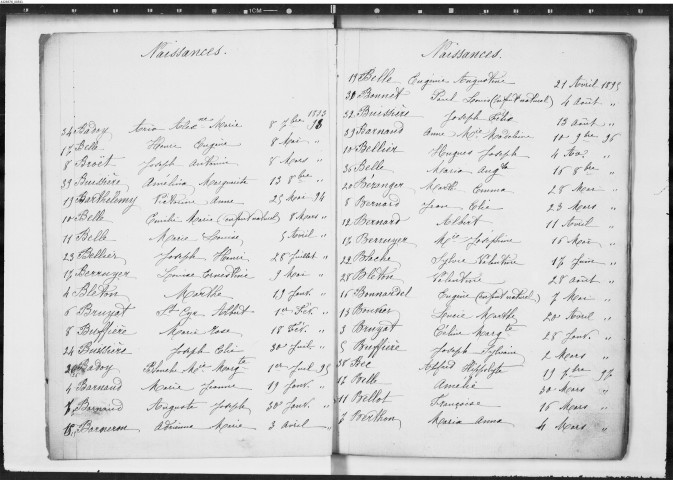 Naissances.
1893
34 Badoy Marie 8 7bre 93
17 Belle Henri Eugène 8 Mai "
8 Broët Joseph Antonin 8 Mars "
39 Buissière Amélina Marguerite 13 8bre "
19 Barthelemy Victorine Anne 25 Mai 94
10 Belle Emilie Marie (enfant naturel) 8 Mars "
11 Belle Marie Louise 5 Avril "
23 Bellier Joseph Henri 28 Juillet "
17 Berruyer Louise Ernestine 9 Mai "
4 Bléton Marthe 29 Janv. "
6 Bruyat St Cyr Albert 1er Fév. "
8 Buffière Marie Rose 18 Fév. "
24 Buissière Joseph Elie 30 Juil "
20 Badoy Blanche Mie Margte 1er Juil 95
4 Barnaud Marie Jeanne 19 Janv. "
7 Bernaud Auguste Joseph 30 Janv. "
15 Barneron Adrienne Marie 3 Avril "
Naissances.
19 Belle Eugénie Augustine 21 Avril 1895
30 Bonnet Paul Louis (enfant naturel) 4 Août "
32 Buissière Joseph Félix 13 Août "
39 Barnaud Anne Mie Madeleine 10 9bre 96
10 Bellier Hugues Joseph 4 Fév. "
36 Belle Maria Augte 15 8bre "
20 Bézenger Marth Emma 28 Mai "
8 Bernard Jean Elie 23 Mars "
12 Bernard Albert 11 Avril "
17 Berruyer Mie Joséphine 15 Mai "
22 Blache Sylvie Valentine 17 Juin "
28 Bléton Valentine 28 Août "
16 Bonnardel Eugène (enfant naturel) 7 Mai "
13 Bouvier Louise Marthe 20 Avril "
3 Bruyat Céline Margte 28 Janv. "
5 Buffière Joseph Sylvain 2 Mars "
38 Bec Alfred Hippolyte 19 7bre 97
17 Belle Amélie 30 Mars "
11 Bellot Françoise 15 Mars "
7 Berthon Maria Anna 4 Mars "